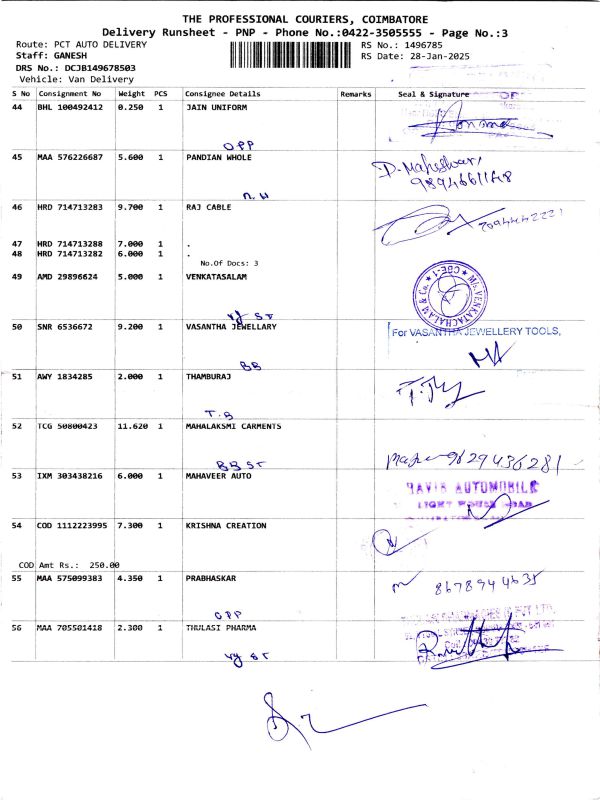 THE PROFESSIONAL COURIERS, COIMBATORE
Delivery Runsheet - PNP - Phone No.:0422-3505555 - Page No.:3
Route: PCT AUTO DELIVERY RS No.: 1496785
Staff: GANESH RS Date: 28-Jan-2025
DRS No.: DCJB149678503
Vehicle: Van Delivery
S No Consignment No Weight PCS Consignee Details Remarks Seal & Signature
44 BHL 100492412 0.250 1 JAIN UNIFORM
OPP
45 MAA 576226687 5.600 1 PANDIAN WHOLE D. Maheshwari
9894661148
N.H
46 HRD 714713283 9.700 1 RAJ CABLE 2094442221
47 HRD 714713288 7.000 1 .
48 HRD 714713282 6.000 1 .
No.Of Docs: 3
49 AMD 29896624 5.000 1 VENKATASALAM
MA. VENKATACHALAM & Co. CBE-1
vy ST
50 SNR 6536672 9.200 1 VASANTHA JEWELLARY For VASANTHA JEWELLERY TOOLS,
BB
51 AWY 1834285 2.000 1 THAMBURAJ
T.B
52 TCG 50800423 11.620 1 MAHALAKSMI CARMENTS
BB ST 9629436281
53 IXM 303438216 6.000 1 MAHAVEER AUTO RAVIS AUTOMOBILE
LIGHT HOUSE ROAD
54 COD 1112223995 7.300 1 KRISHNA CREATION
COD Amt Rs.: 250.00
55 MAA 575099383 4.350 1 PRABHASKAR 8678944635
OPP
56 MAA 705501418 2.300 1 THULASI PHARMA
vy ST